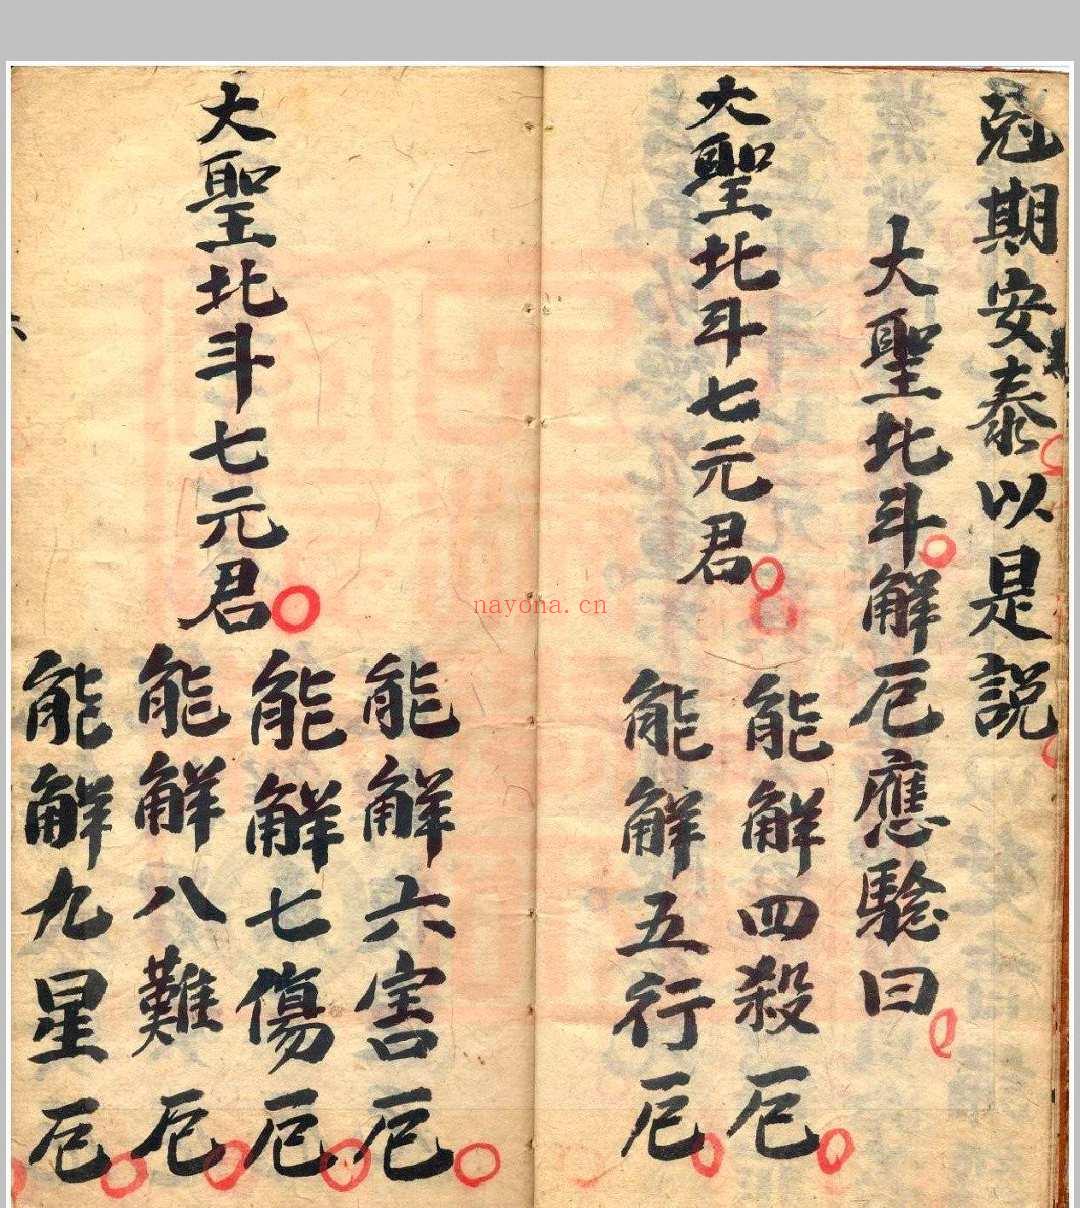 尅期安泰以是説
大聖北斗解厄應騐曰
大聖北斗七元君
能解四殺厄
能解五行厄
能解六害厄
大聖北斗七元君
能解七傷厄
能解八難厄
能解九星厄
nayona.cn